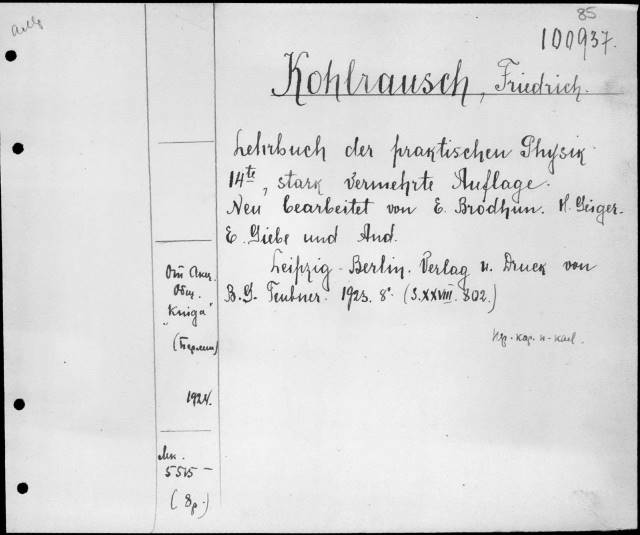 85
100937.
Kohlrausch, Friedrich.
Lehrbuch der praktischen Physik.
14te, stark vermehrte Auflage.
Neu bearbeitet von E. Brodhun. H. Geiger.
E. Giebe und And.
Leipzig - Berlin. Verlag u. Druck von
B. G. Teubner. 1923. 8°. (S. XXVIII. 802.)
От Акц.
Общ.
"Книга"
(Берлин)
1924.
5515 —
(8р.)